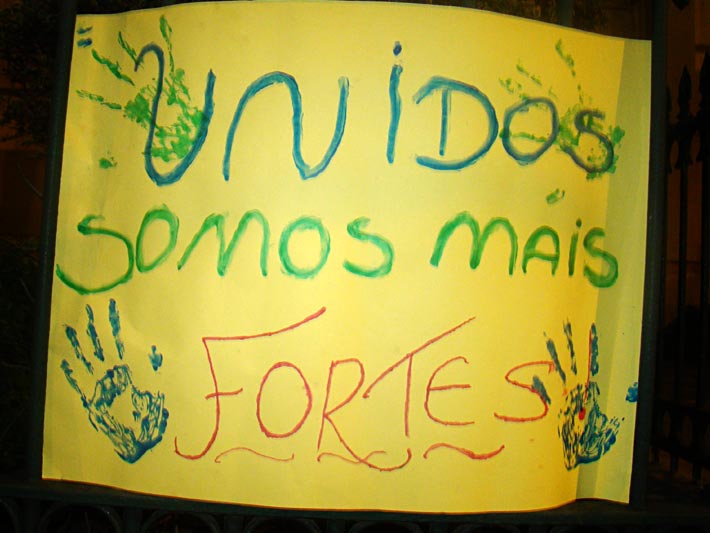 UNIDOS
SOMOS MAIS
FORTES!